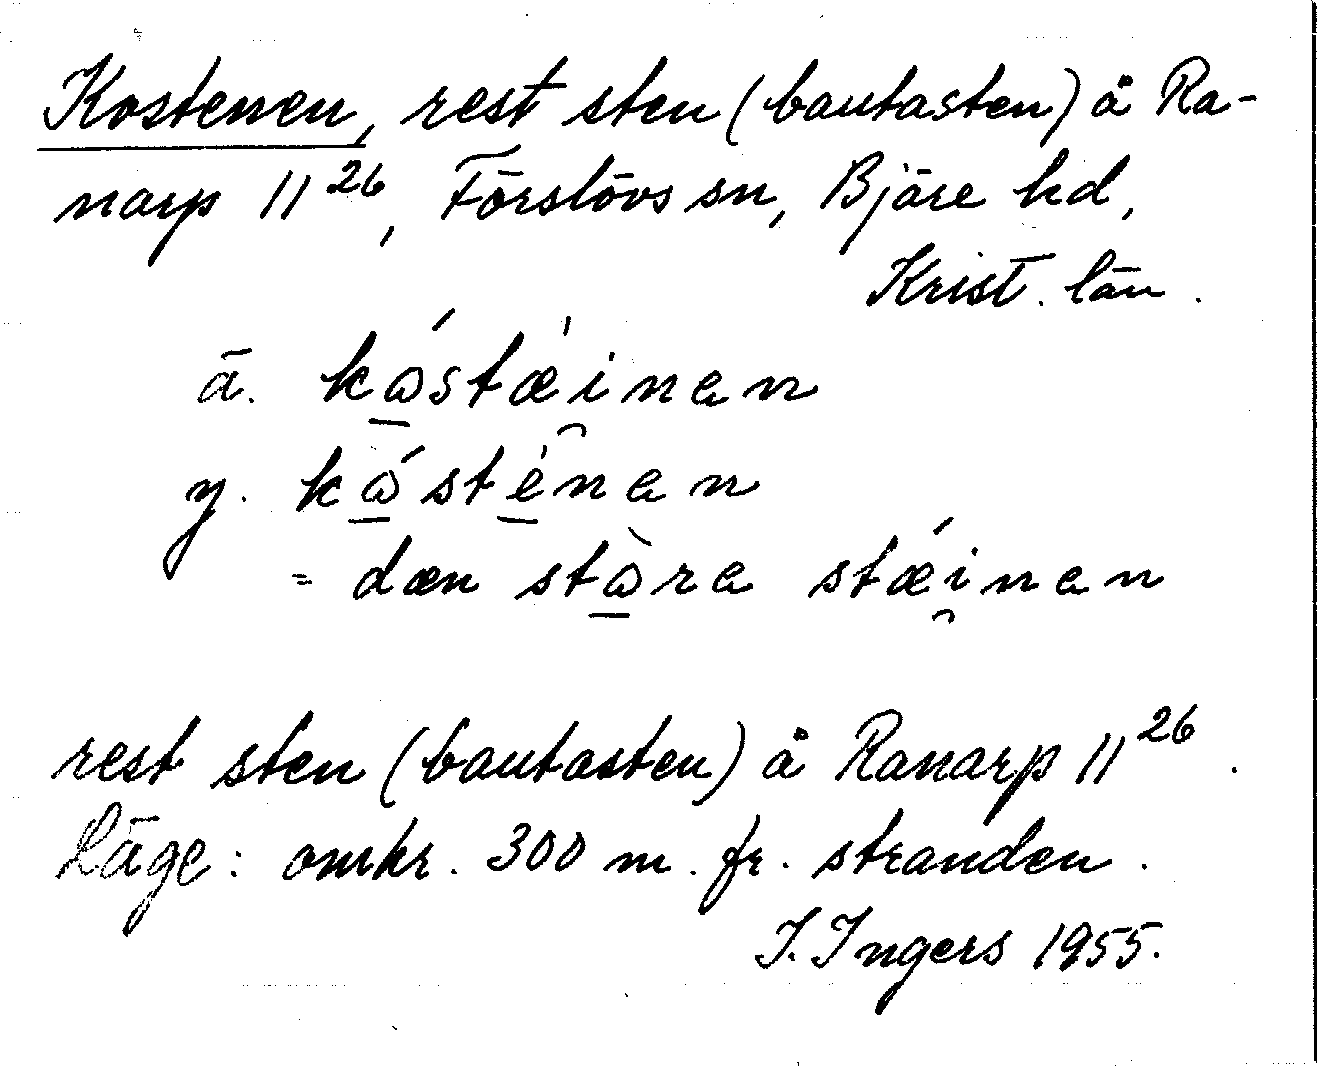 Kostenen, rest sten (bautasten) å Ra-
narp 11²⁶, Förslövs sn, Bjäre hd,
Krist. län.
ä. kώ̱stæ̍i̯nen
y. kώ̱stė̱nen
= dæn stὼ̱re stǽi̯nen
rest sten (bautasten) å Ranarp 11²⁶.
Läge: omkr. 300 m. fr. stranden.
I. Ingers 1955.